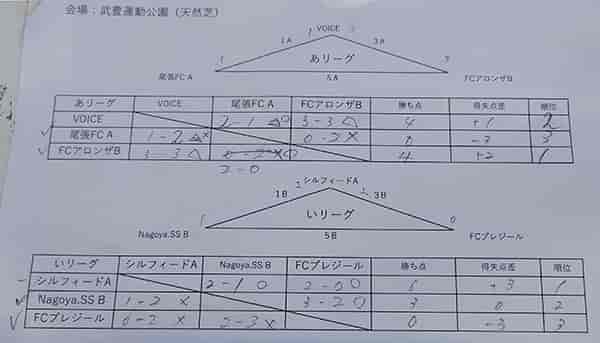 会場：武豊運動公園（天然芝）
VOICE
1A 3B
あリーグ
尾張FC A 5A FCアロンザB
あリーグ VOICE 尾張FC A FCアロンザB 勝ち点 得失点差 順位
VOICE 2-1 3-3 △ 4 +1 2
尾張FC A 1-2 × 0-2 × 0 -3 3
FCアロンザB 3-3 △ 4 +2 1
2-0
シルフィードA
1B 3B
いリーグ
Nagoya.SS B 5B FCプレジール
いリーグ シルフィードA Nagoya.SS B FCプレジール 勝ち点 得失点差 順位
シルフィードA 2-1 ○ 2-0 ○ +3 1
Nagoya.SS B 1-2 × 3-2 ○ 3 0 2
FCプレジール 0-2 × 2-3 × 0 -3 3